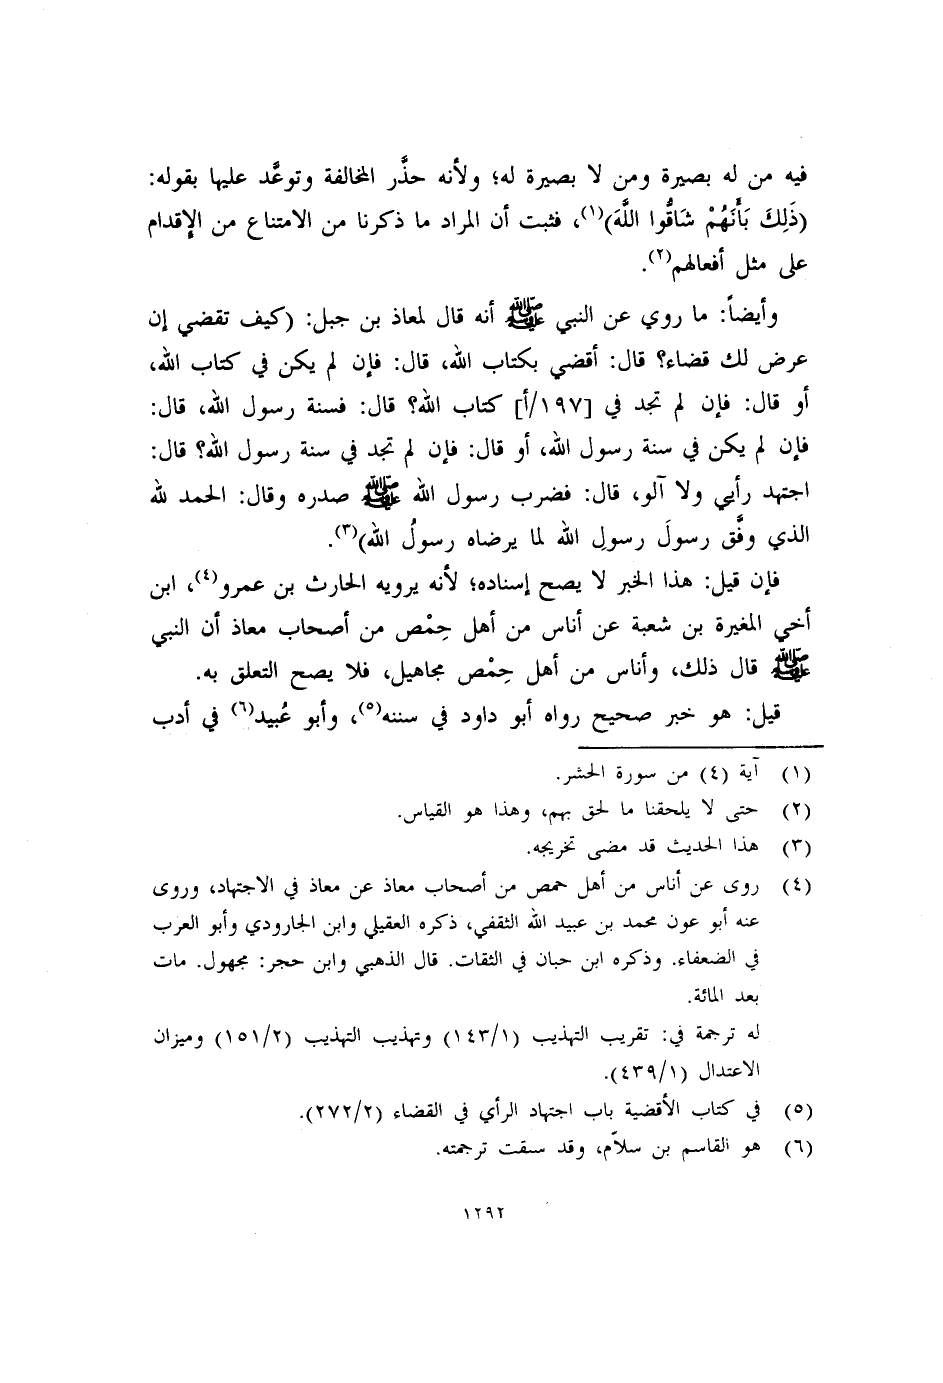 فيه من له بصيرة ومن لا بصيرة له؛ ولأنه حذَّر المخالفة وتوعَّد عليها بقوله:
(ذَلِكَ بَأَنَهُمْ شَاقُّوا اللَّهَ)(١)، فثبت أن المراد ما ذكرنا من الامتناع من الإقدام
على مثل أفعالهم(٢).
وأيضاً: ما روي عن النبي ﷺ أنه قال لمعاذ بن جبل: (كيف تقضي إن
عرض لك قضاء؟ قال: أقضي بكتاب الله، قال: فإن لم يكن في كتاب الله،
أو قال: فإن لم تجد في [١٩٧/أ] كتاب الله؟ قال: فسنة رسول الله، قال:
فإن لم يكن في سنة رسول الله، أو قال: فإن لم تجد في سنة رسول الله؟ قال:
اجتهد رأيي ولا آلو، قال: فضرب رسول الله ﷺ صدره وقال: الحمد لله
الذي وفَّق رسولَ رسولِ الله لما يرضاه رسولُ الله)(٣).
فإن قيل: هذا الخبر لا يصح إسناده؛ لأنه يرويه الحارث بن عمرو(٤)، ابن
أخي المغيرة بن شعبة عن أناس من أهل حِمْص من أصحاب معاذ أن النبي
ﷺ قال ذلك، وأناس من أهل حِمْص مجاهيل، فلا يصح التعلق به.
قيل: هو خبر صحيح رواه أبو داود في سننه(٥)، وأبو عُبيد(٦) في أدب
(١) آية (٤) من سورة الحشر.
(٢) حتى لا يلحقنا ما لحق بهم، وهذا هو القياس.
(٣) هذا الحديث قد مضى تخريجه.
(٤) روى عن أناس من أهل حمص من أصحاب معاذ عن معاذ في الاجتهاد، وروى
عنه أبو عون محمد بن عبيد الله الثقفي، ذكره العقيلي وابن الجارودي وأبو العرب
في الضعفاء. وذكره ابن حبان في الثقات. قال الذهبي وابن حجر: مجهول. مات
بعد المائة.
له ترجمة في: تقريب التهذيب (١٤٣/١) وتهذيب التهذيب (١٥١/٢) وميزان
الاعتدال (٤٣٩/١).
(٥) في كتاب الأقضية باب اجتهاد الرأي في القضاء (٢٧٢/٢).
(٦) هو القاسم بن سلاّم، وقد سبقت ترجمته.
١٢٩٢